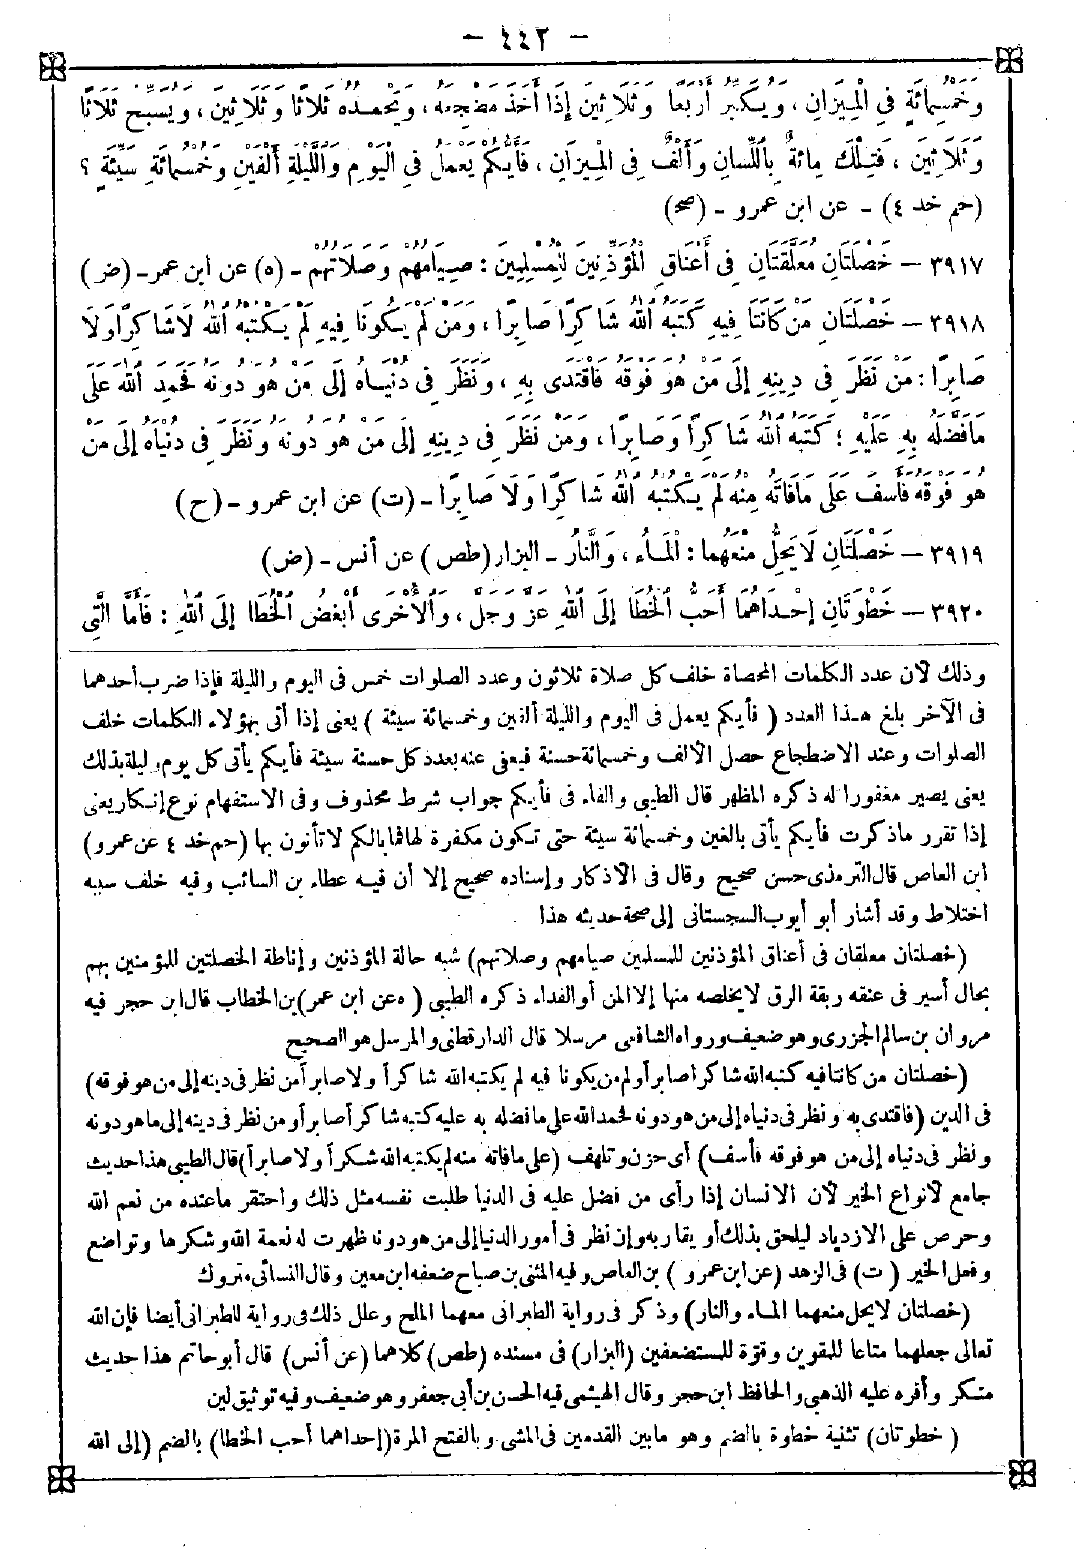 - ٤٤٢ -
وَخَمْسُمِائَةٍ فِي الْمِيزَانِ ، وَيُكَبِّرُ أَرْبَعًا وَثَلَاثِينَ إِذَا أَخَذَ مَضْجَعَهُ ، وَيَحْمَدُهُ ثَلَاثًا وَثَلَاثِينَ ، وَيُسَبِّحُ ثَلَاثًا
وَثَلَاثِينَ ، فَتِلْكَ مِائَةٌ بِاللِّسَانِ وَأَلْفٌ فِى الْمِيزَانِ ، فَأَيُّكُمْ يَعْمَلُ فِي الْيَوْمِ وَاللَّيْلَةِ أَلْفَيْنِ وَخَمْسَمِائَةِ سَيِّئَةٍ ؟
(حم خد ٤) - عن ابن عمرو - (صح)
٣٩١٧ - خَصْلَتَانِ مُعَلَّقَتَانِ فِى أَعْنَاقِ الْمُؤَذِّنِينَ لِلْمُسْلِمِينَ : صِيَامُهُمْ وَصَلَاتُهُمْ - (ه) عن ابن عمر - (ض)
٣٩١٨ - خَصْلَتَانِ مَنْ كَانَتَا فِيهِ كَتَبَهُ اللَّهُ شَاكِرًا صَابِرًا ، وَمَنْ لَمْ يَكُونَا فِيهِ لَمْ يَكْتُبْهُ اللَّهُ لَا شَاكِرًا وَلَا
صَابِرًا : مَنْ نَظَرَ فِى دِينِهِ إِلَى مَنْ هُوَ فَوْقَهُ فَاقْتَدَى بِهِ ، وَنَظَرَ فِى دُنْيَاهُ إِلَى مَنْ هُوَ دُونَهُ فَحَمِدَ اللَّهَ عَلَى
مَا فَضَّلَهُ بِهِ عَلَيْهِ ؛ كَتَبَهُ اللَّهُ شَاكِرًا وَصَابِرًا ، وَمَنْ نَظَرَ فِى دِينِهِ إِلَى مَنْ هُوَ دُونَهُ وَنَظَرَ فِى دُنْيَاهُ إِلَى مَنْ
هُوَ فَوْقَهُ فَأَسِفَ عَلَى مَا فَاتَهُ مِنْهُ لَمْ يَكْتُبْهُ اللَّهُ شَاكِرًا وَلَا صَابِرًا - (ت) عن ابن عمرو - (ح)
٣٩١٩ - خَصْلَتَانِ لَا يَحِلُّ مَنْعُهُمَا : الْمَاءُ ، وَالنَّارُ - البزار (طص) عن أنس - (ض)
٣٩٢٠ - خَطْوَتَانِ إِحْدَاهُمَا أَحَبُّ الْخُطَا إِلَى اللَّهِ عَزَّ وَجَلَّ ، وَالْأُخْرَى أَبْغَضُ الْخُطَا إِلَى اللَّهِ : فَأَمَّا الَّتِى
وذلك لأن عدد الكلمات المحصاة خلف كل صلاة ثلاثون وعدد الصلوات خمس فى اليوم والليلة فإذا ضرب أحدهما
فى الآخر بلغ هذا العدد ( فأيكم يعمل فى اليوم والليلة ألفين وخمسمائة سيئة ) يعنى إذا أتى بهؤلاء الكلمات خلف
الصلوات وعند الاضطجاع حصل الألف وخمسمائة حسنة فيعفى عنه بعدد كل حسنة سيئة فأيكم يأتى كل يوم وليلة بذلك
يعنى يصير مغفورا له ذكره المظهر قال الطيبى والفاء فى فأيكم جواب شرط محذوف وفى الاستفهام نوع إنكار يعنى
إذا تقرر ما ذكرت فأيكم يأتى بالفين وخمسمائة سيئة حتى تكون مكفرة لها فما بالكم لا تأتون بها (حم خد ٤ عن عمرو)
ابن العاص قال الترمذى حسن صحيح وقال فى الأذكار وإسناده صحيح إلا أن فيه عطاء بن السائب وفيه خلف سببه
اختلاط وقد أشار أبو أيوب السجستانى إلى صحة حديثه هذا
(خصلتان معلقان فى أعناق المؤذنين للمسلمين صيامهم وصلاتهم) شبه حالة المؤذنين وإناطة الخصلتين للمؤمنين بهم
بحال أسير فى عنقه ربقة الرق لا يخلصه منها إلا المن أو الفداء ذكره الطيبى ( ه عن ابن عمر) بن الخطاب قال ابن حجر فيه
مروان بن سالم الجزرى وهو ضعيف ورواه الشافعى مرسلا قال الدارقطنى والمرسل هو الصحيح
(خصلتان من كانتا فيه كتبه الله شاكرا صابرا ولم من يكونا فيه لم يكتبه الله شاكرا ولا صابرا من نظر فى دينه إلى من هو فوقه)
فى الدين (فاقتدى به ونظر فى دنياه إلى من هو دونه فحمد الله على ما فضله به عليه كتبه شاكرا صابرا ومن نظر فى دينه إلى ما هو دونه
ونظر فى دنياه إلى من هو فوقه فأسف) أى حزن وتلهف (على ما فاته منه لم يكتبه الله شكراً ولا صابراً) قال الطيبى هذا حديث
جامع لأنواع الخير لأن الانسان إذا رأى من فضل عليه فى الدنيا طلبت نفسه مثل ذلك واحتقر ما عنده من نعم الله
وحرص على الازدياد ليلحق بذلك أو يقاربه وإن نظر فى أمور الدنيا إلى من هو دونه ظهرت له نعمة الله وشكرها وتواضع
وفعل الخير ( ت) فى الزهد (عن ابن عمرو ) بن العاص وفيه المثنى بن صباح ضعفه ابن معين وقال النسائى متروك
(خصلتان لا يحل منعهما الماء والنار) وذكر فى رواية الطبرانى معهما الملح وعلل ذلك فى رواية للطبرانى أيضا فإن الله
تعالى جعلهما متاعا للمقوين وقوة للمستضعفين (البزار) فى مسنده (طص) كلاهما (عن أنس) قال أبو حاتم هذا حديث
منكر وأقره عليه الذهبى والحافظ ابن حجر وقال الهيثمى فيه الحسن بن أبى جعفر وهو ضعيف وفيه توثيق لين
( خطوتان) تثنية خطوة بالضم وهو ما بين القدمين فى المشى وبالفتح المرة (إحداهما أحب الخطا) بالضم (إلى الله